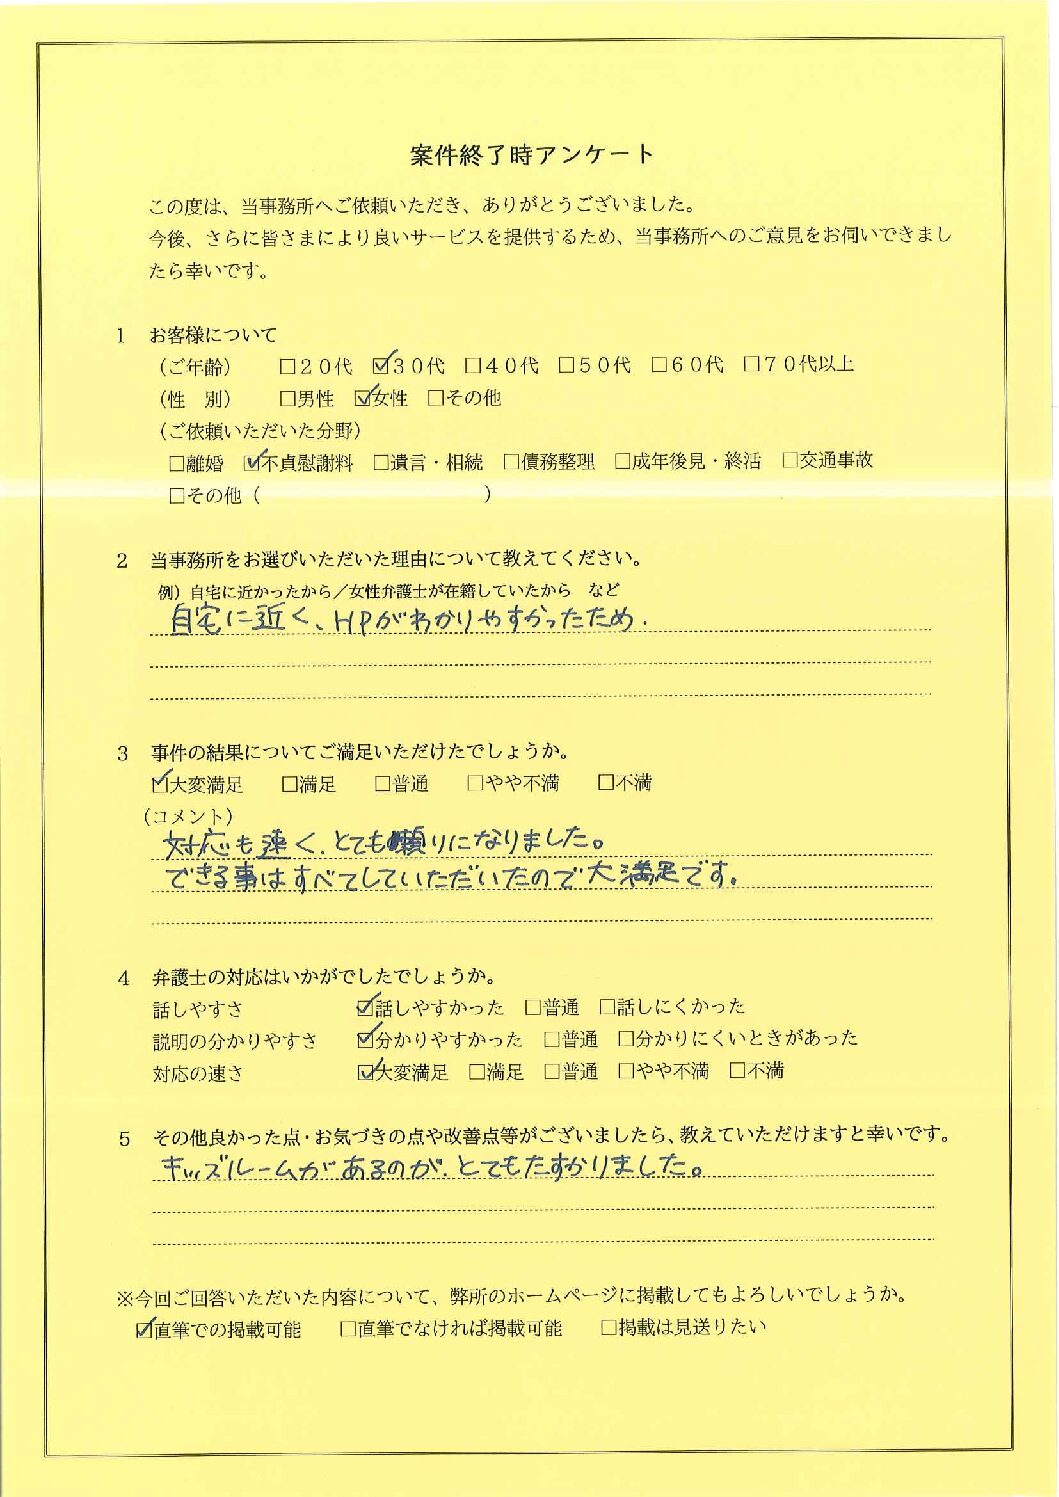 案件終了時アンケート
この度は、当事務所へご依頼いただき、ありがとうございました。
今後、さらに皆さまにより良いサービスを提供するため、当事務所へのご意見をお伺いできまし
たら幸いです。
1 お客様について
（ご年齢） □２０代 ☑３０代 □４０代 □５０代 □６０代 □７０代以上
（性 別） □男性 ☑女性 □その他
（ご依頼いただいた分野）
□離婚 ☑不貞慰謝料 □遺言・相続 □債務整理 □成年後見・終活 □交通事故
□その他（ ）
2 当事務所をお選びいただいた理由について教えてください。
例）自宅に近かったから／女性弁護士が在籍していたから など
自宅に近く、HPがわかりやすかったため.
3 事件の結果についてご満足いただけたでしょうか。
☑大変満足 □満足 □普通 □やや不満 □不満
（コメント）
対応も速く、とても頼りになりました。
できる事はすべてしていただいたので大満足です。
4 弁護士の対応はいかがでしたでしょうか。
話しやすさ ☑話しやすかった □普通 □話しにくかった
説明の分かりやすさ ☑分かりやすかった □普通 □分かりにくいときがあった
対応の速さ ☑大変満足 □満足 □普通 □やや不満 □不満
5 その他良かった点・お気づきの点や改善点等がございましたら、教えていただけますと幸いです。
キッズルームがあるのが、とてもたすかりました。
※今回ご回答いただいた内容について、弊所のホームページに掲載してもよろしいでしょうか。
☑直筆での掲載可能 □直筆でなければ掲載可能 □掲載は見送りたい